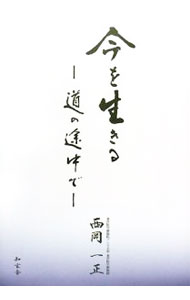 今を生きる
―道の途中で―
西岡一正